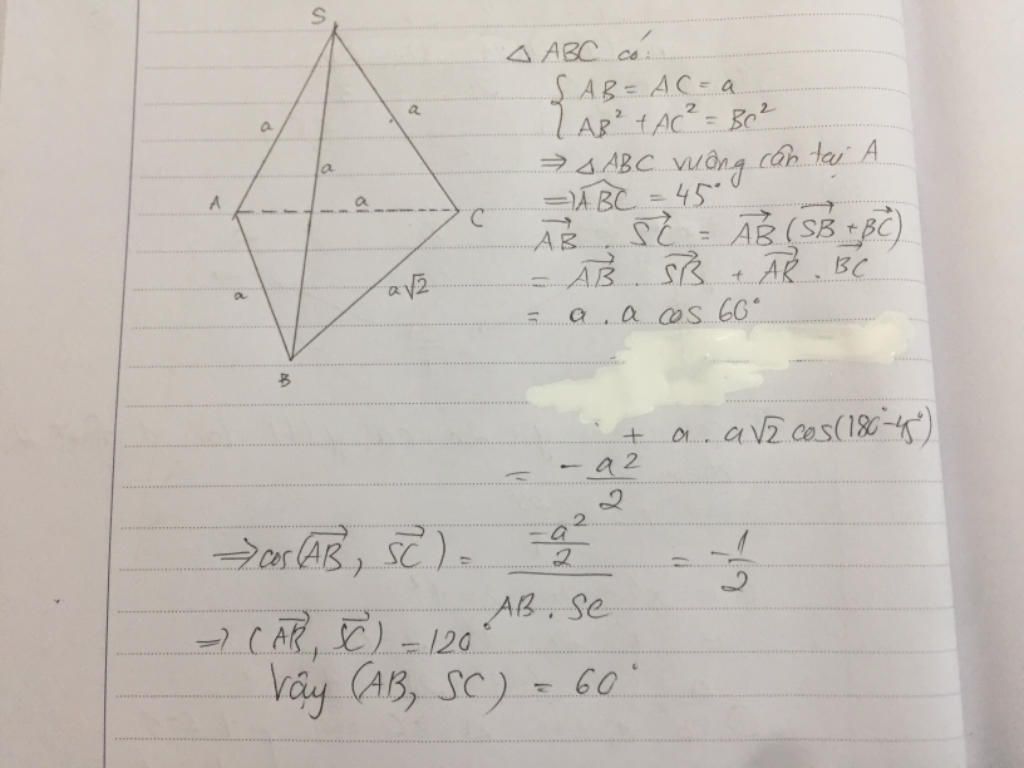 S
a
a
a
A
a
C
a
a√2
B
△ ABC có:
{ AB = AC = a
AB² + AC² = BC²
⇒ △ABC vuông cân tại A
⇒ \widehat{ABC} = 45°
\vec{AB} . \vec{SC} = \vec{AB} (\vec{SB} + \vec{BC})
= \vec{AB} . \vec{SB} + \vec{AB} . \vec{BC}
= a . a cos 60°
+ a . a√2 cos(180° - 45°)
= \frac{-a²}{2}
⇒ cos(\vec{AB}, \vec{SC}) = \frac{\frac{-a²}{2}}{AB . SC} = \frac{-1}{2}
⇒ (\vec{AB}, \vec{SC}) = 120°
Vậy (AB, SC) = 60°